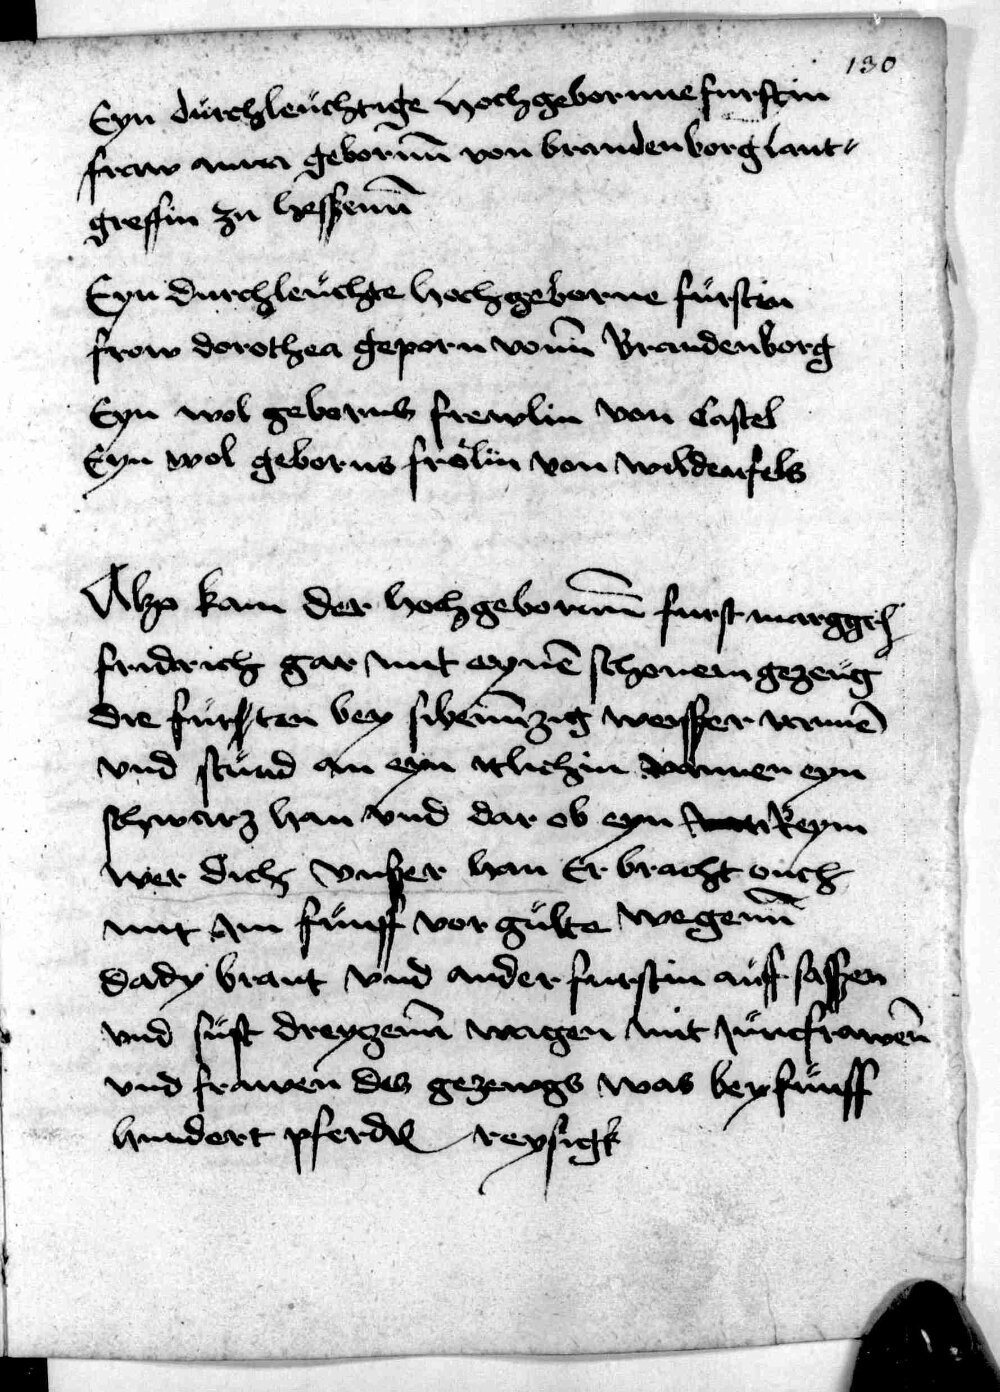 130
Eyn durchleuchtige hochgebornne furstin
fraw anna gebornn von brandenborg lant-
greffin zu hesszenn
Eyn durchleuchte hochgeborne fürstin
frow dorothea geporn vonn Brandenborg
Eyn wol geborns frewlin von Castel
Eyn wol geborns frölin von wildenfels
Alzo kam der hochgebornnn furst marggr
fridrich gar mit eynē schonem gezeug
die fürsten bey sibennzig weysser vannē
vnd stund an eyn itlichin vannen eyn
schwarz han vnd dar ob eyn Reym
wer dich vnszer han Er bracht ouch
mit Im fünff vor gülte wegenn
dady braut vnd ander furstin auff saszen
vnd süst dreyzenn wagen mit Jüncfrawen
vnd frawen des gezewgs was bey fünff
hundert pferdt reysigk